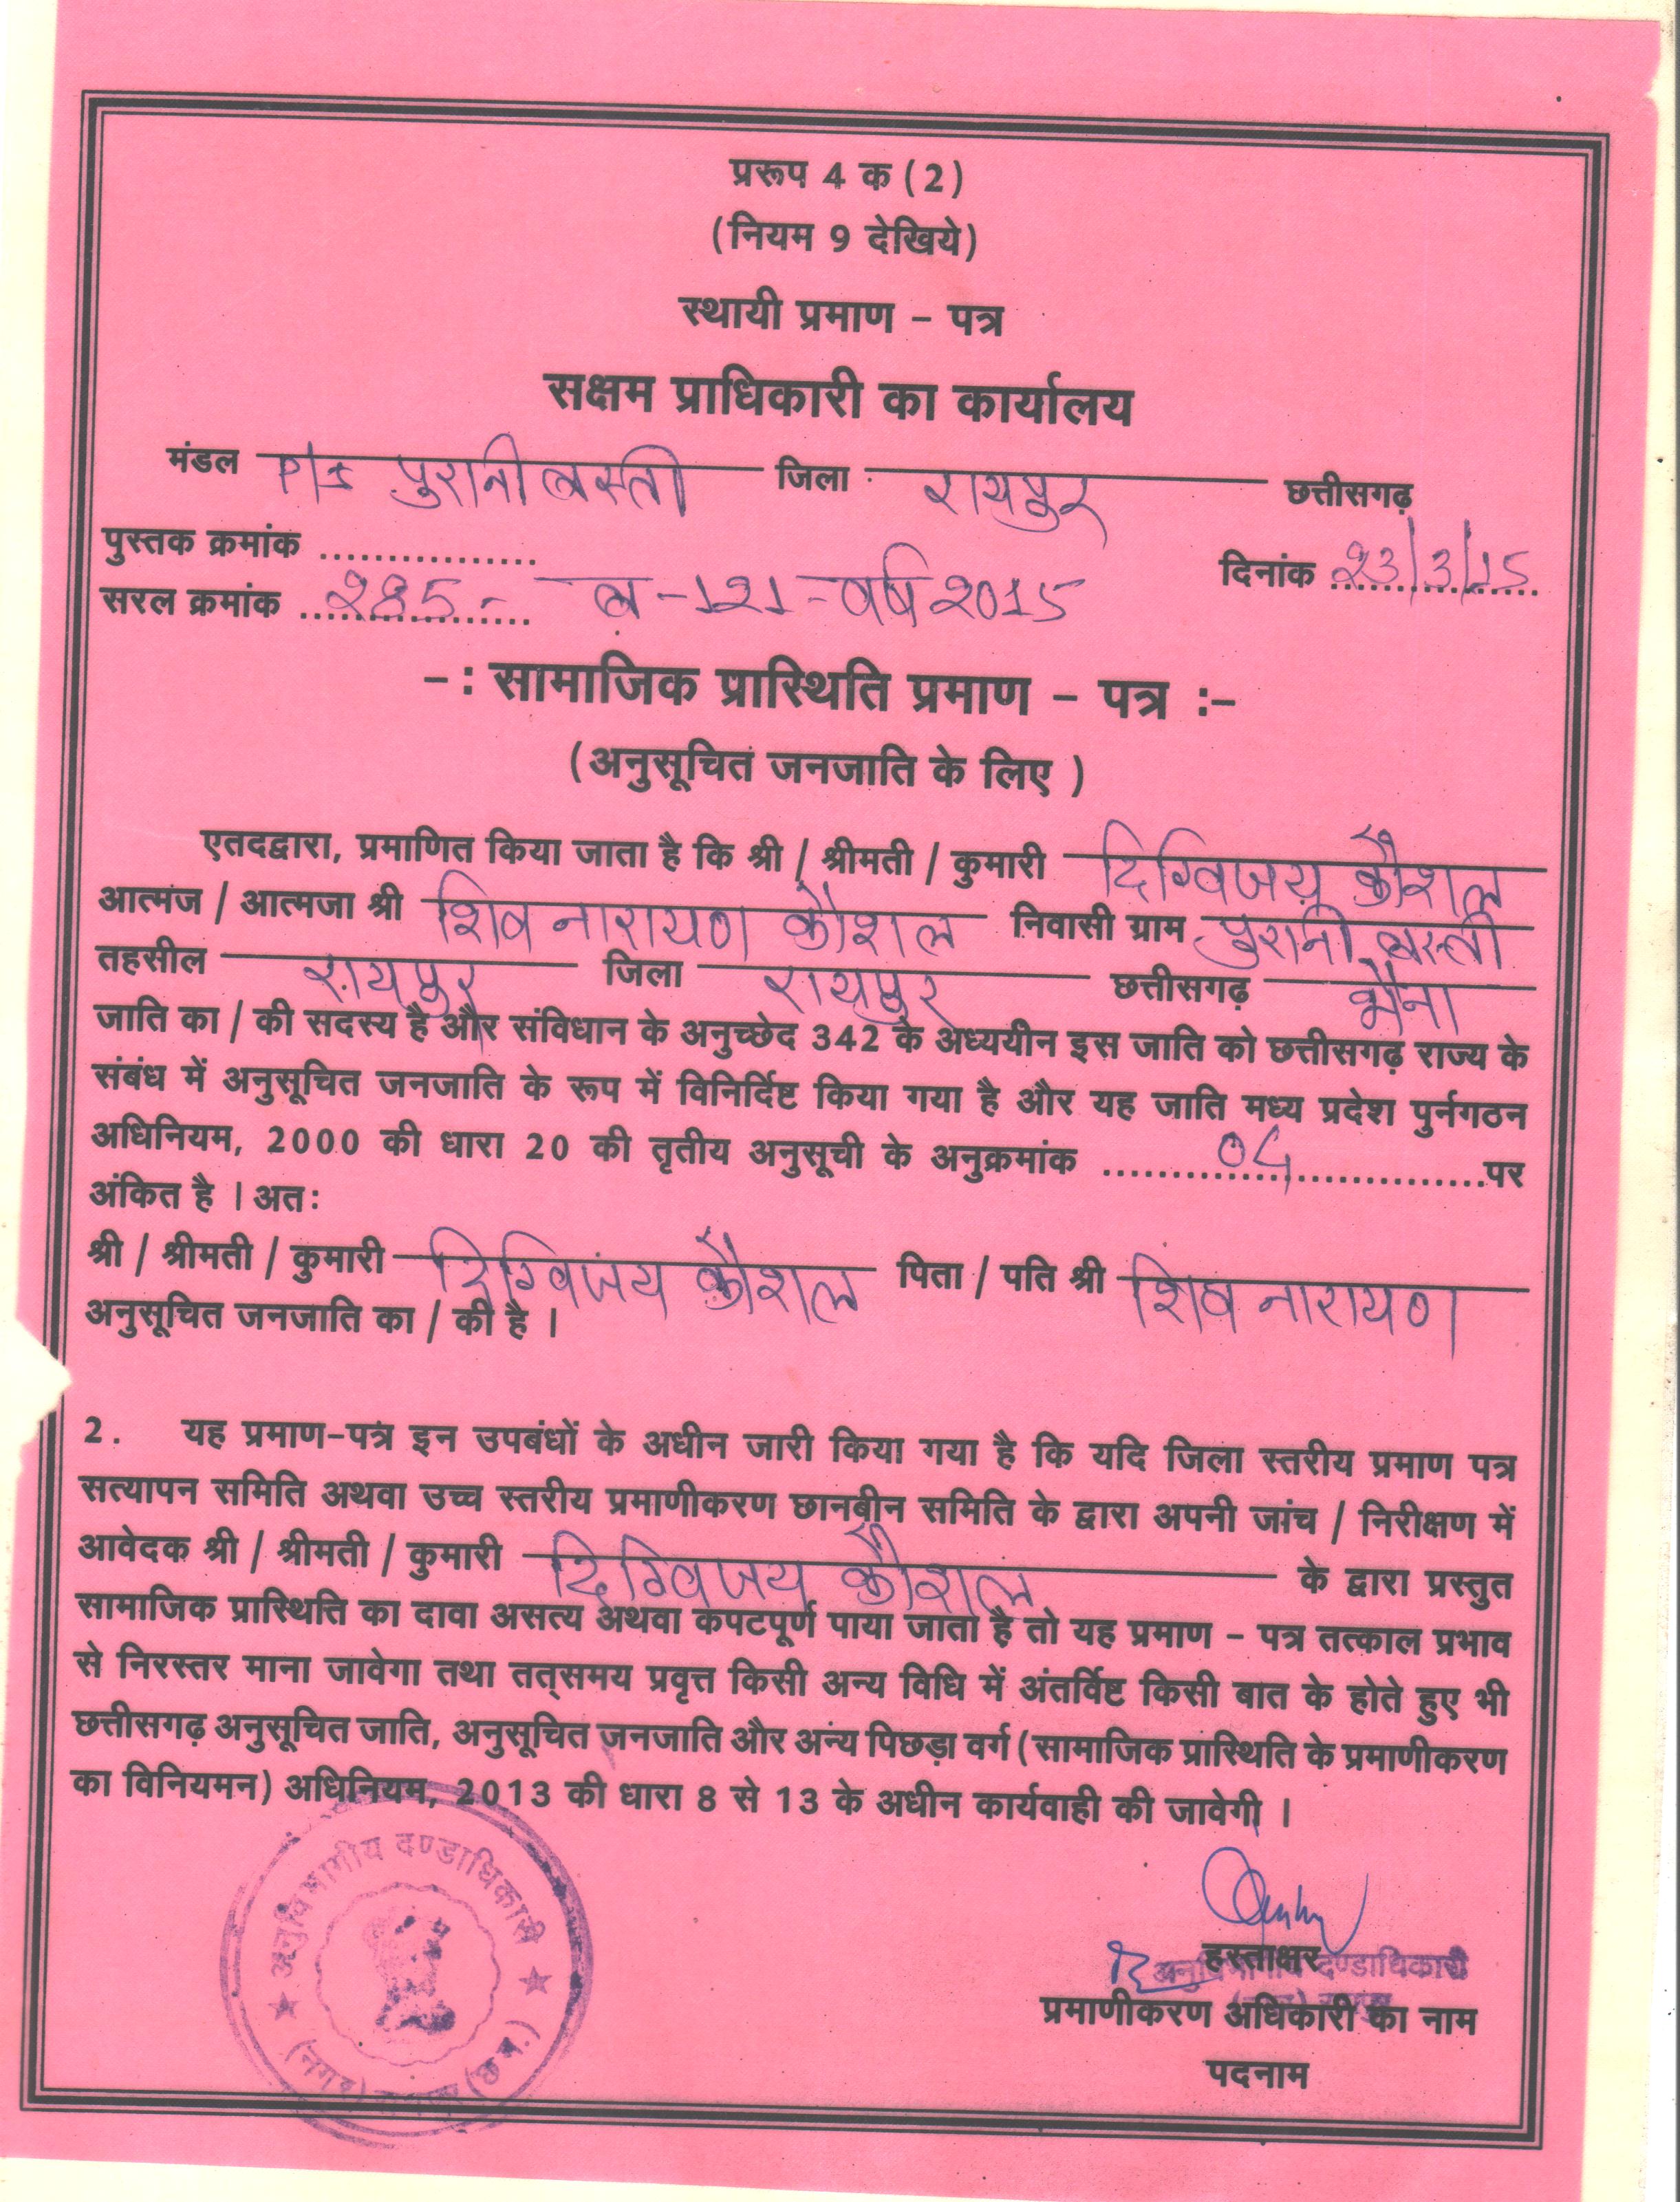 प्ररूप 4 क (2)
(नियम 9 देखिये)
स्थायी प्रमाण – पत्र
सक्षम प्राधिकारी का कार्यालय
मंडल पुरानी बस्ती जिला रायपुर छत्तीसगढ़
पुस्तक क्रमांक ................ दिनांक 23/3/15
सरल क्रमांक 285 - ब - 121 - वर्ष 2015
– : सामाजिक प्रास्थिति प्रमाण – पत्र :–
(अनुसूचित जनजाति के लिए )
एतदद्वारा, प्रमाणित किया जाता है कि श्री / श्रीमती / कुमारी दिग्विजय कौशल
आत्मंज / आत्मजा श्री शिव नारायण कौशल निवासी ग्राम पुरानी बस्ती
तहसील रायपुर जिला रायपुर छत्तीसगढ़ भैना
जाति का / की सदस्य है और संविधान के अनुच्छेद 342 के अध्ययीन इस जाति को छत्तीसगढ़ राज्य के
संबंध में अनुसूचित जनजाति के रूप में विनिर्दिष्ट किया गया है और यह जाति मध्य प्रदेश पुर्नगठन
अधिनियम, 2000 की धारा 20 की तृतीय अनुसूची के अनुक्रमांक 04 पर
अंकित है । अतः
श्री / श्रीमती / कुमारी दिग्विजय कौशल पिता / पति श्री शिव नारायण
अनुसूचित जनजाति का / की है ।
2. यह प्रमाण–पत्र इन उपबंधों के अधीन जारी किया गया है कि यदि जिला स्तरीय प्रमाण पत्र
सत्यापन समिति अथवा उच्च स्तरीय प्रमाणीकरण छानबीन समिति के द्वारा अपनी जांच / निरीक्षण में
आवेदक श्री / श्रीमती / कुमारी दिग्विजय कौशल के द्वारा प्रस्तुत
सामाजिक प्रास्थित्ति का दावा असत्य अथवा कपटपूर्ण पाया जाता है तो यह प्रमाण – पत्र तत्काल प्रभाव
से निरस्तर माना जावेगा तथा तत्समय प्रवृत्त किसी अन्य विधि में अंतर्विष्ट किसी बात के होते हुए भी
छत्तीसगढ़ अनुसूचित जाति, अनुसूचित जनजाति और अन्य पिछड़ा वर्ग (सामाजिक प्रास्थिति के प्रमाणीकरण
का विनियमन) अधिनियम, 2013 की धारा 8 से 13 के अधीन कार्यवाही की जावेगी ।
अनुविभागीय दण्डाधिकारी
हस्ताक्षर
अनुविभागीय दण्डाधिकारी
प्रमाणीकरण अधिकारी का नाम
पदनाम